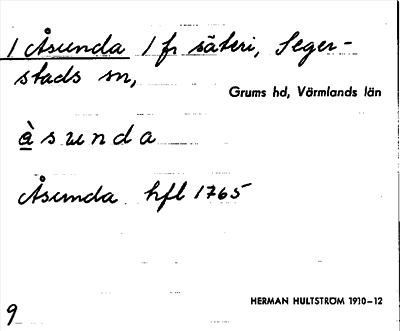 1 Åsunda 1 fr säteri, Seger-
stads sn,
Grums hd, Värmlands län
å̀sunda
Åsunda hfl 1765
HERMAN HULTSTRÖM 1910–12
9